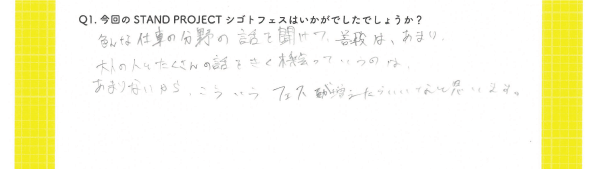 Q1. 今回の STAND PROJECT シゴトフェスはいかがでしたでしょうか？
色んな仕事の分野の話を聞けて、普段は、あまり、
大人の人とたくさんの話をきく機会っていうのは、
あまりないから、こういう フェス が増えたらいいなと思います。